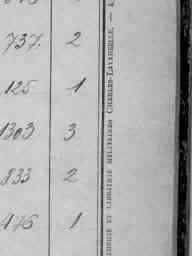 737. 2
125 1
1303 3
833 2
476 1
IMPRIMERIE ET LIBRAIRIE MILITAIRES CHARLES-LAVAUZELLE. —